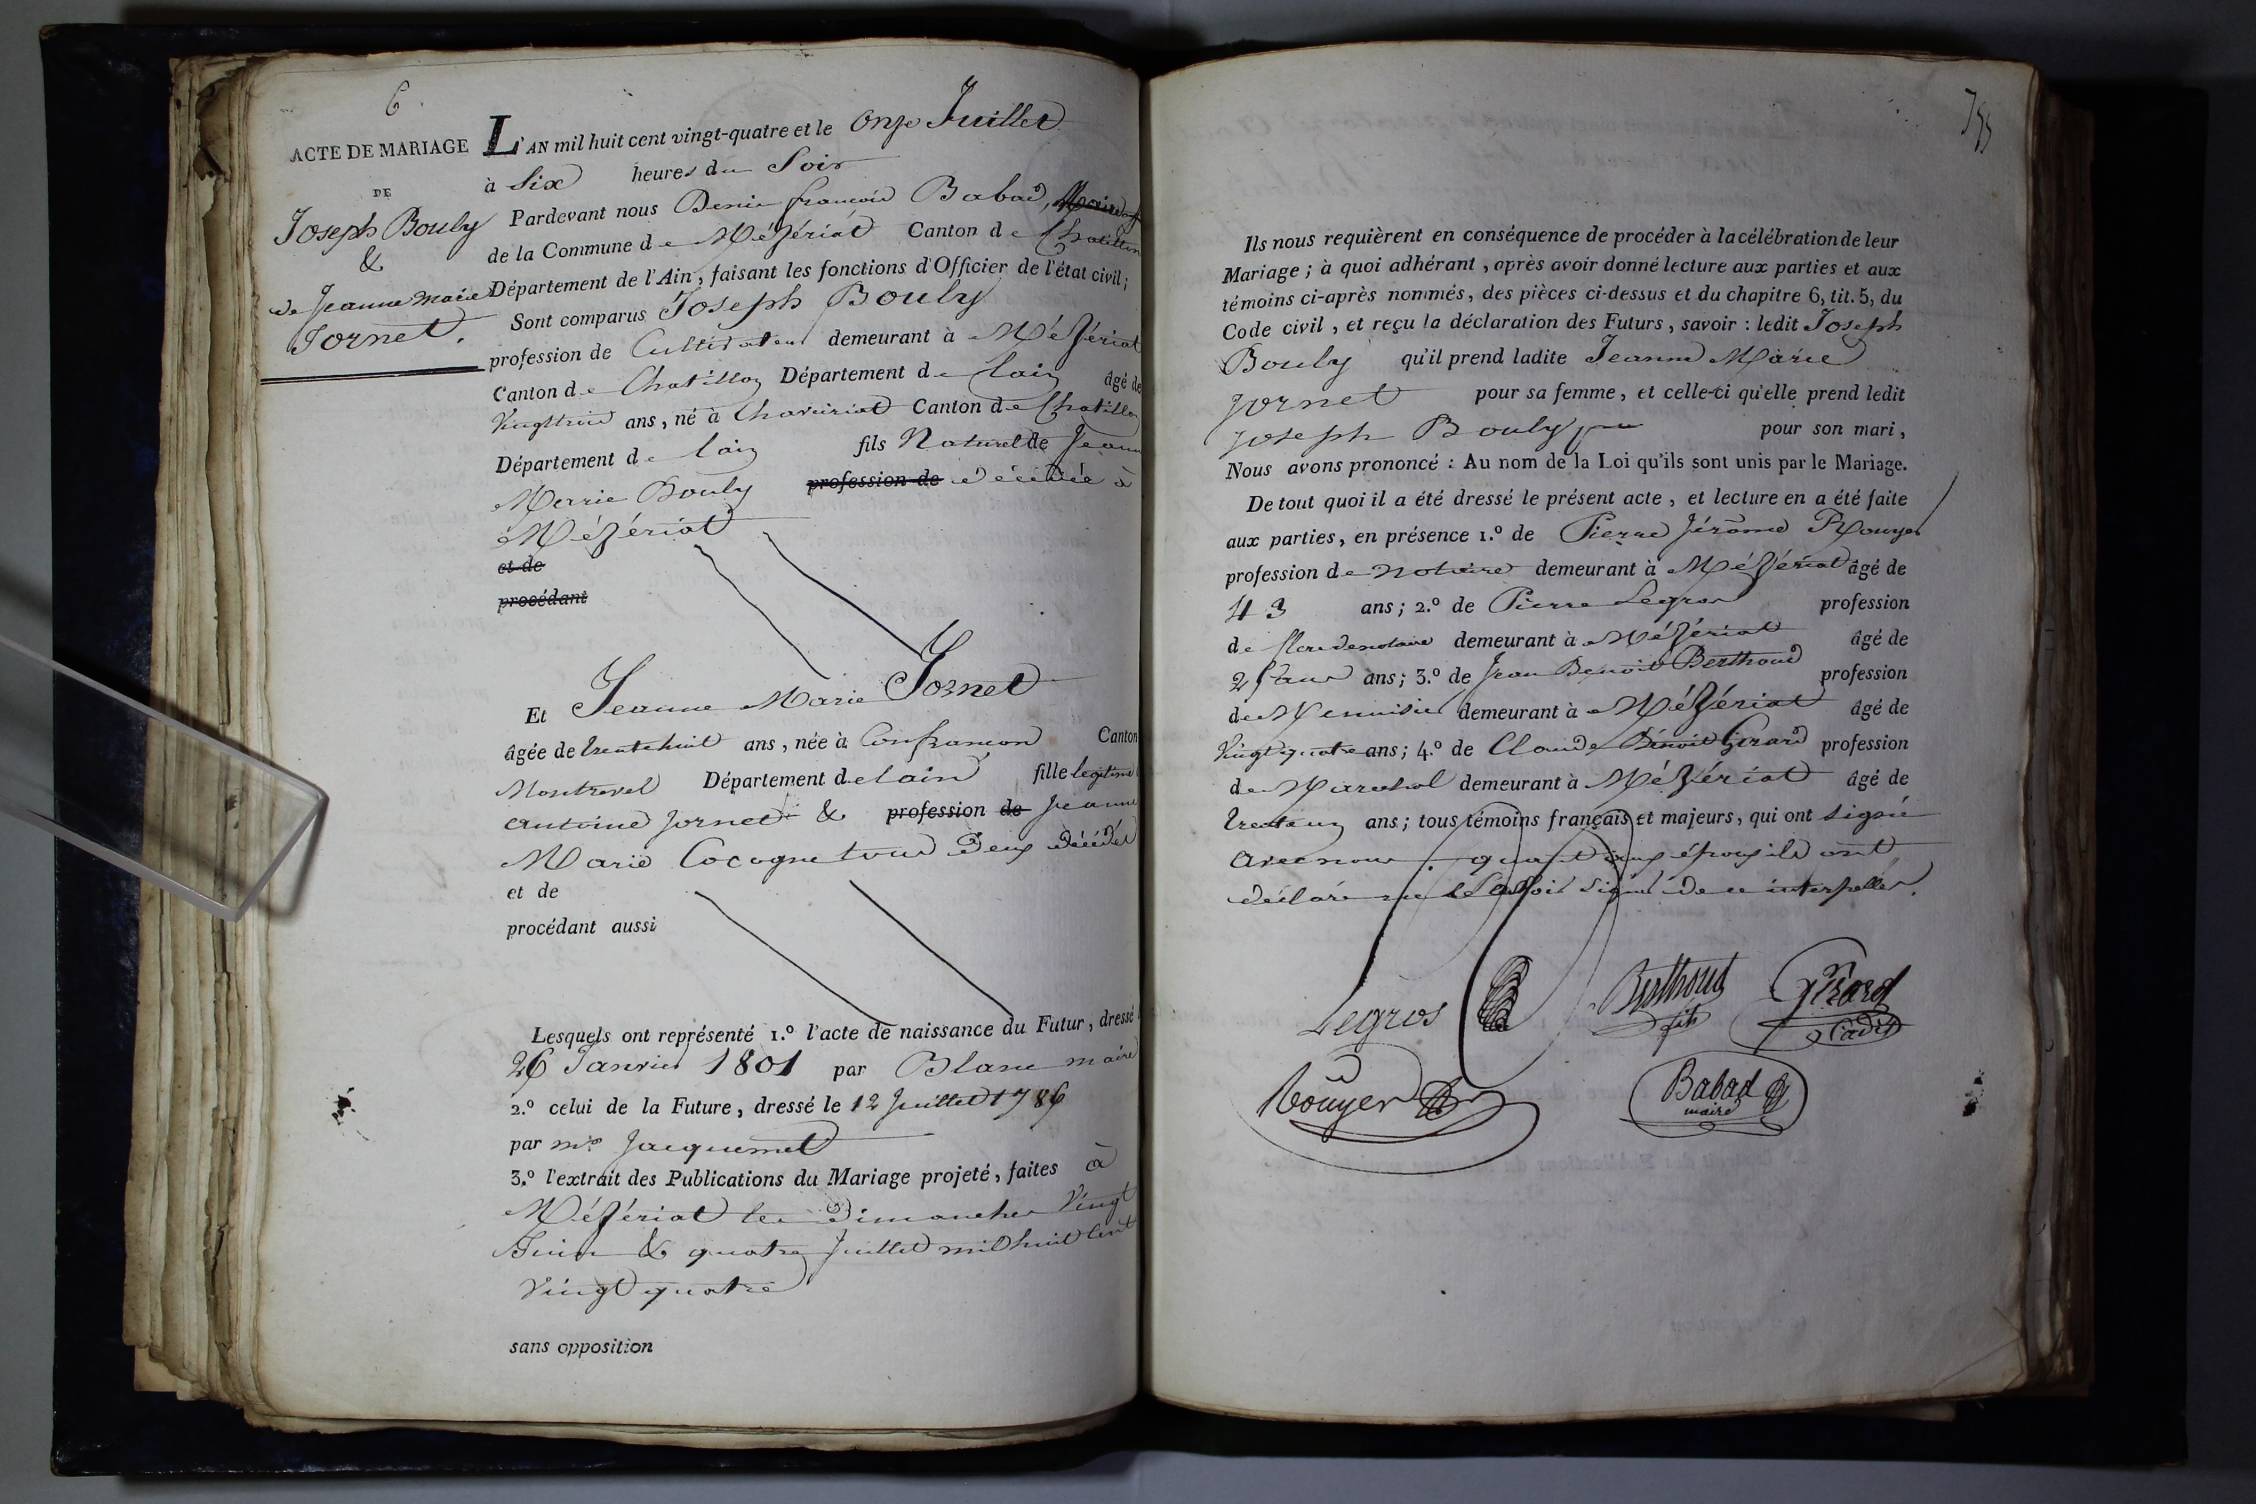 6
ACTE DE MARIAGE
DE
Joseph Bouly
&
de Jeanne Marie
Jornet.
L'AN mil huit cent vingt-quatre et le onze Juillet
à Six heures du Soir
Pardevant nous Denis françois Babad, Maire
de la Commune de Mézériat Canton de Chatillon
Département de l'Ain, faisant les fonctions d'Officier de l'état civil;
Sont comparus Joseph Bouly
profession de Cultivateur demeurant à Mézériat
Canton de Chatillon Département de lain âgé de
Vingttrois ans, né à Chaveiriat Canton de Chatillon
Département de lain fils Naturel de Jeanne
Marie Bouly profession de décédée à
Mézériat
et de
procédant
Et Jeanne Marie Jornet
âgée de trentehuit ans, née à Confrançon Canton
Montrevel Département de lain fille legitime
antoine Jornet & profession de Jeanne
Marie Cocogne tous deux décédés
et de
procédant aussi
Lesquels ont représenté 1.º l'acte de naissance du Futur, dressé
26 Janvier 1801 par Blanc maire
2.º celui de la Future, dressé le 12 Juillet 1786
par mre Jacquemet
3.º l'extrait des Publications du Mariage projeté, faites à
Mézériat les dimanches Vingt
Juin & quatre Juillet mil huit Cent
Vingt quatre
sans opposition
Ils nous requièrent en conséquence de procéder à la célébration de leur
Mariage; à quoi adhérant, après avoir donné lecture aux parties et aux
témoins ci-après nommés, des pièces ci-dessus et du chapitre 6, tit. 5, du
Code civil, et reçu la déclaration des Futurs, savoir: ledit Joseph
Bouly qu'il prend ladite Jeanne Marie
Jornet pour sa femme, et celle-ci qu'elle prend ledit
Joseph Bouly pour son mari,
Nous avons prononcé: Au nom de la Loi qu'ils sont unis par le Mariage.
De tout quoi il a été dressé le présent acte, et lecture en a été faite
aux parties, en présence 1.º de Pierre Jérôme Rouyer
profession de Notaire demeurant à Mézériat âgé de
43 ans; 2.º de Pierre Legros profession
de Clerc de notaire demeurant à Mézériat âgé de
ans; 3.º de Jean Benoit Berthoud profession
de Menuisier demeurant à Mézériat âgé de
Vingt quatre ans; 4.º de Claude Benoit Girard profession
de Marechal demeurant à Mézériat âgé de
ans; tous témoins français et majeurs, qui ont signé
avec nous. quant aux époux ils ont
déclaré ne le Savoir signé de ce interpellés.
Legros
Berthoud
fils
Girard
Cadet
Rouyer
Babad
maire